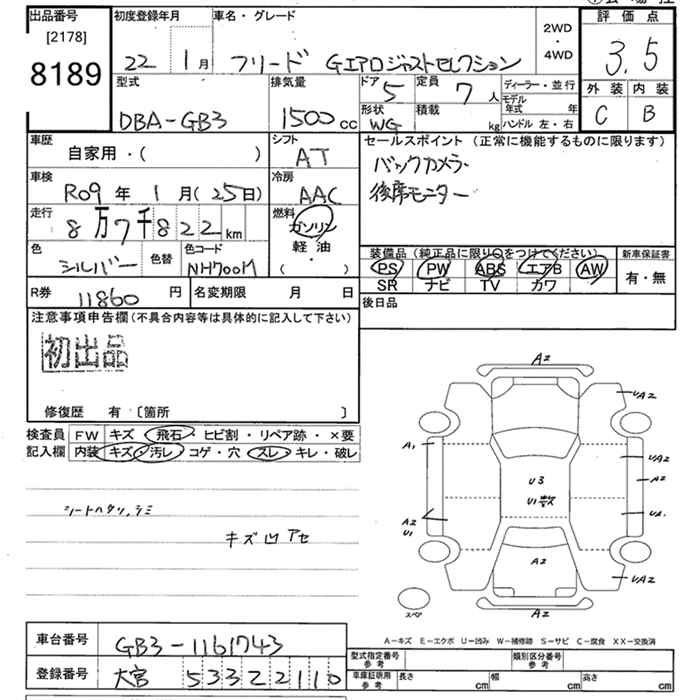 出品番号
[2178]
8189
初度登録年月
22 1月
車名・グレード
フリード Gエアロジャストセレクション
2WD
・
4WD
評価点
3.5
外装 内装
C B
型式
DBA-GB3
排気量
1500cc
ドア 5
定員 7人
形状 WG
積載 kg
ディーラー・並行
モデル年式 年
ハンドル 左・右
車歴
自家用・( )
シフト
AT
セールスポイント (正常に機能するものに限ります)
バックカメラ
後席モニター
車検
R09年 1月(25日)
冷房
AAC
走行
8万7千822km
燃料
ガソリン
軽油
( )
色
シルバー
色替
色コード
NH700M
装備品(純正品に限り○をつけてください)
PS PW ABS エアB AW
SR ナビ TV カワ
新車保証書
有・無
R券 11860円
名変期限 月 日
後日品
注意事項申告欄(不具合内容等は具体的に記入して下さい)
初出品
修復歴 有 〔箇所 〕
検査員記入欄
FW キズ・飛石・ヒビ割・リペア跡・×要
内装 キズ・汚レ・コゲ・穴・スレ・キレ・破レ
シートヘタリ、シミ
キズ凹アセ
A2
UA2
A1
UA2
A2
U3
U1散
A2
U1
UA2
A2
スペア
A2
A-キズ E-エクボ U-凹み W-補修跡 S-サビ C-腐食 XX-交換済
車台番号
GB3-1161743
登録番号
大宮 533 え 2110
型式指定番号 参考
類別区分番号 参考
車庫証明用 参考
長さ cm 幅 cm 高さ cm